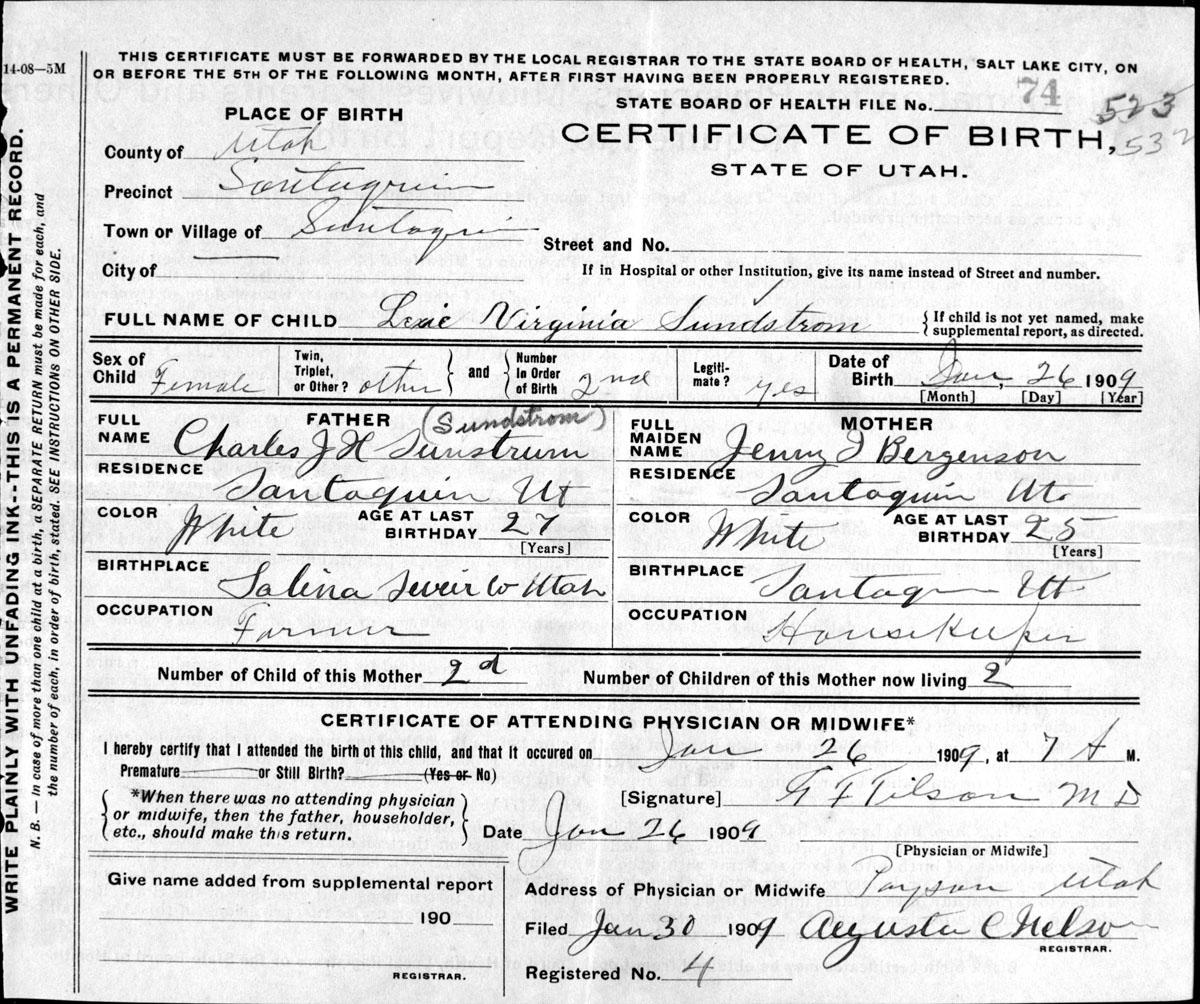 14-08—5M
THIS CERTIFICATE MUST BE FORWARDED BY THE LOCAL REGISTRAR TO THE STATE BOARD OF HEALTH, SALT LAKE CITY, ON
OR BEFORE THE 5TH OF THE FOLLOWING MONTH, AFTER FIRST HAVING BEEN PROPERLY REGISTERED.
STATE BOARD OF HEALTH FILE No. 74 523
532
PLACE OF BIRTH
CERTIFICATE OF BIRTH,
STATE OF UTAH.
County of Utah
Precinct Santaquin
Town or Village of Santaquin
Street and No.
City of
If in Hospital or other Institution, give its name instead of Street and number.
FULL NAME OF CHILD Lexie Virginia Sundstrom { If child is not yet named, make
supplemental report, as directed.
Sex of Child Female
Twin, Triplet, or Other? other } and { Number In Order of Birth 2nd
Legiti-mate? yes
Date of Birth Jan, 26 1909
[Month] [Day] [Year]
FATHER (Sundstrom)
FULL NAME Charles J H Sunstrum
RESIDENCE Santaquin Ut
COLOR White AGE AT LAST BIRTHDAY 27
[Years]
BIRTHPLACE Salena Sevier Co Utah
OCCUPATION Farmer
MOTHER
FULL MAIDEN NAME Jenny I Bergenson
RESIDENCE Santaquin Ut.
COLOR White AGE AT LAST BIRTHDAY 25
[Years]
BIRTHPLACE Santaquin Ut
OCCUPATION HouseKeeper
Number of Child of this Mother 2d Number of Children of this Mother now living 2
CERTIFICATE OF ATTENDING PHYSICIAN OR MIDWIFE*
I hereby certify that I attended the birth of this child, and that it occured on Jan 26 1909, at 7 A M.
Premature or Still Birth? (Yes or No)
{ *When there was no attending physician
or midwife, then the father, householder,
etc., should make this return. }
[Signature] Tilson M D
Date Jan 26 1909
[Physician or Midwife]
Give name added from supplemental report
190
REGISTRAR.
Address of Physician or Midwife Payson Utah
Filed Jan 30 1909 August C Nelson
REGISTRAR.
Registered No. 4
WRITE PLAINLY WITH UNFADING INK---THIS IS A PERMANENT RECORD.
N. B. — In case of more than one child at a birth, a SEPARATE RETURN must be made for each, and
the number of each, in order of birth, stated. SEE INSTRUCTIONS ON OTHER SIDE.